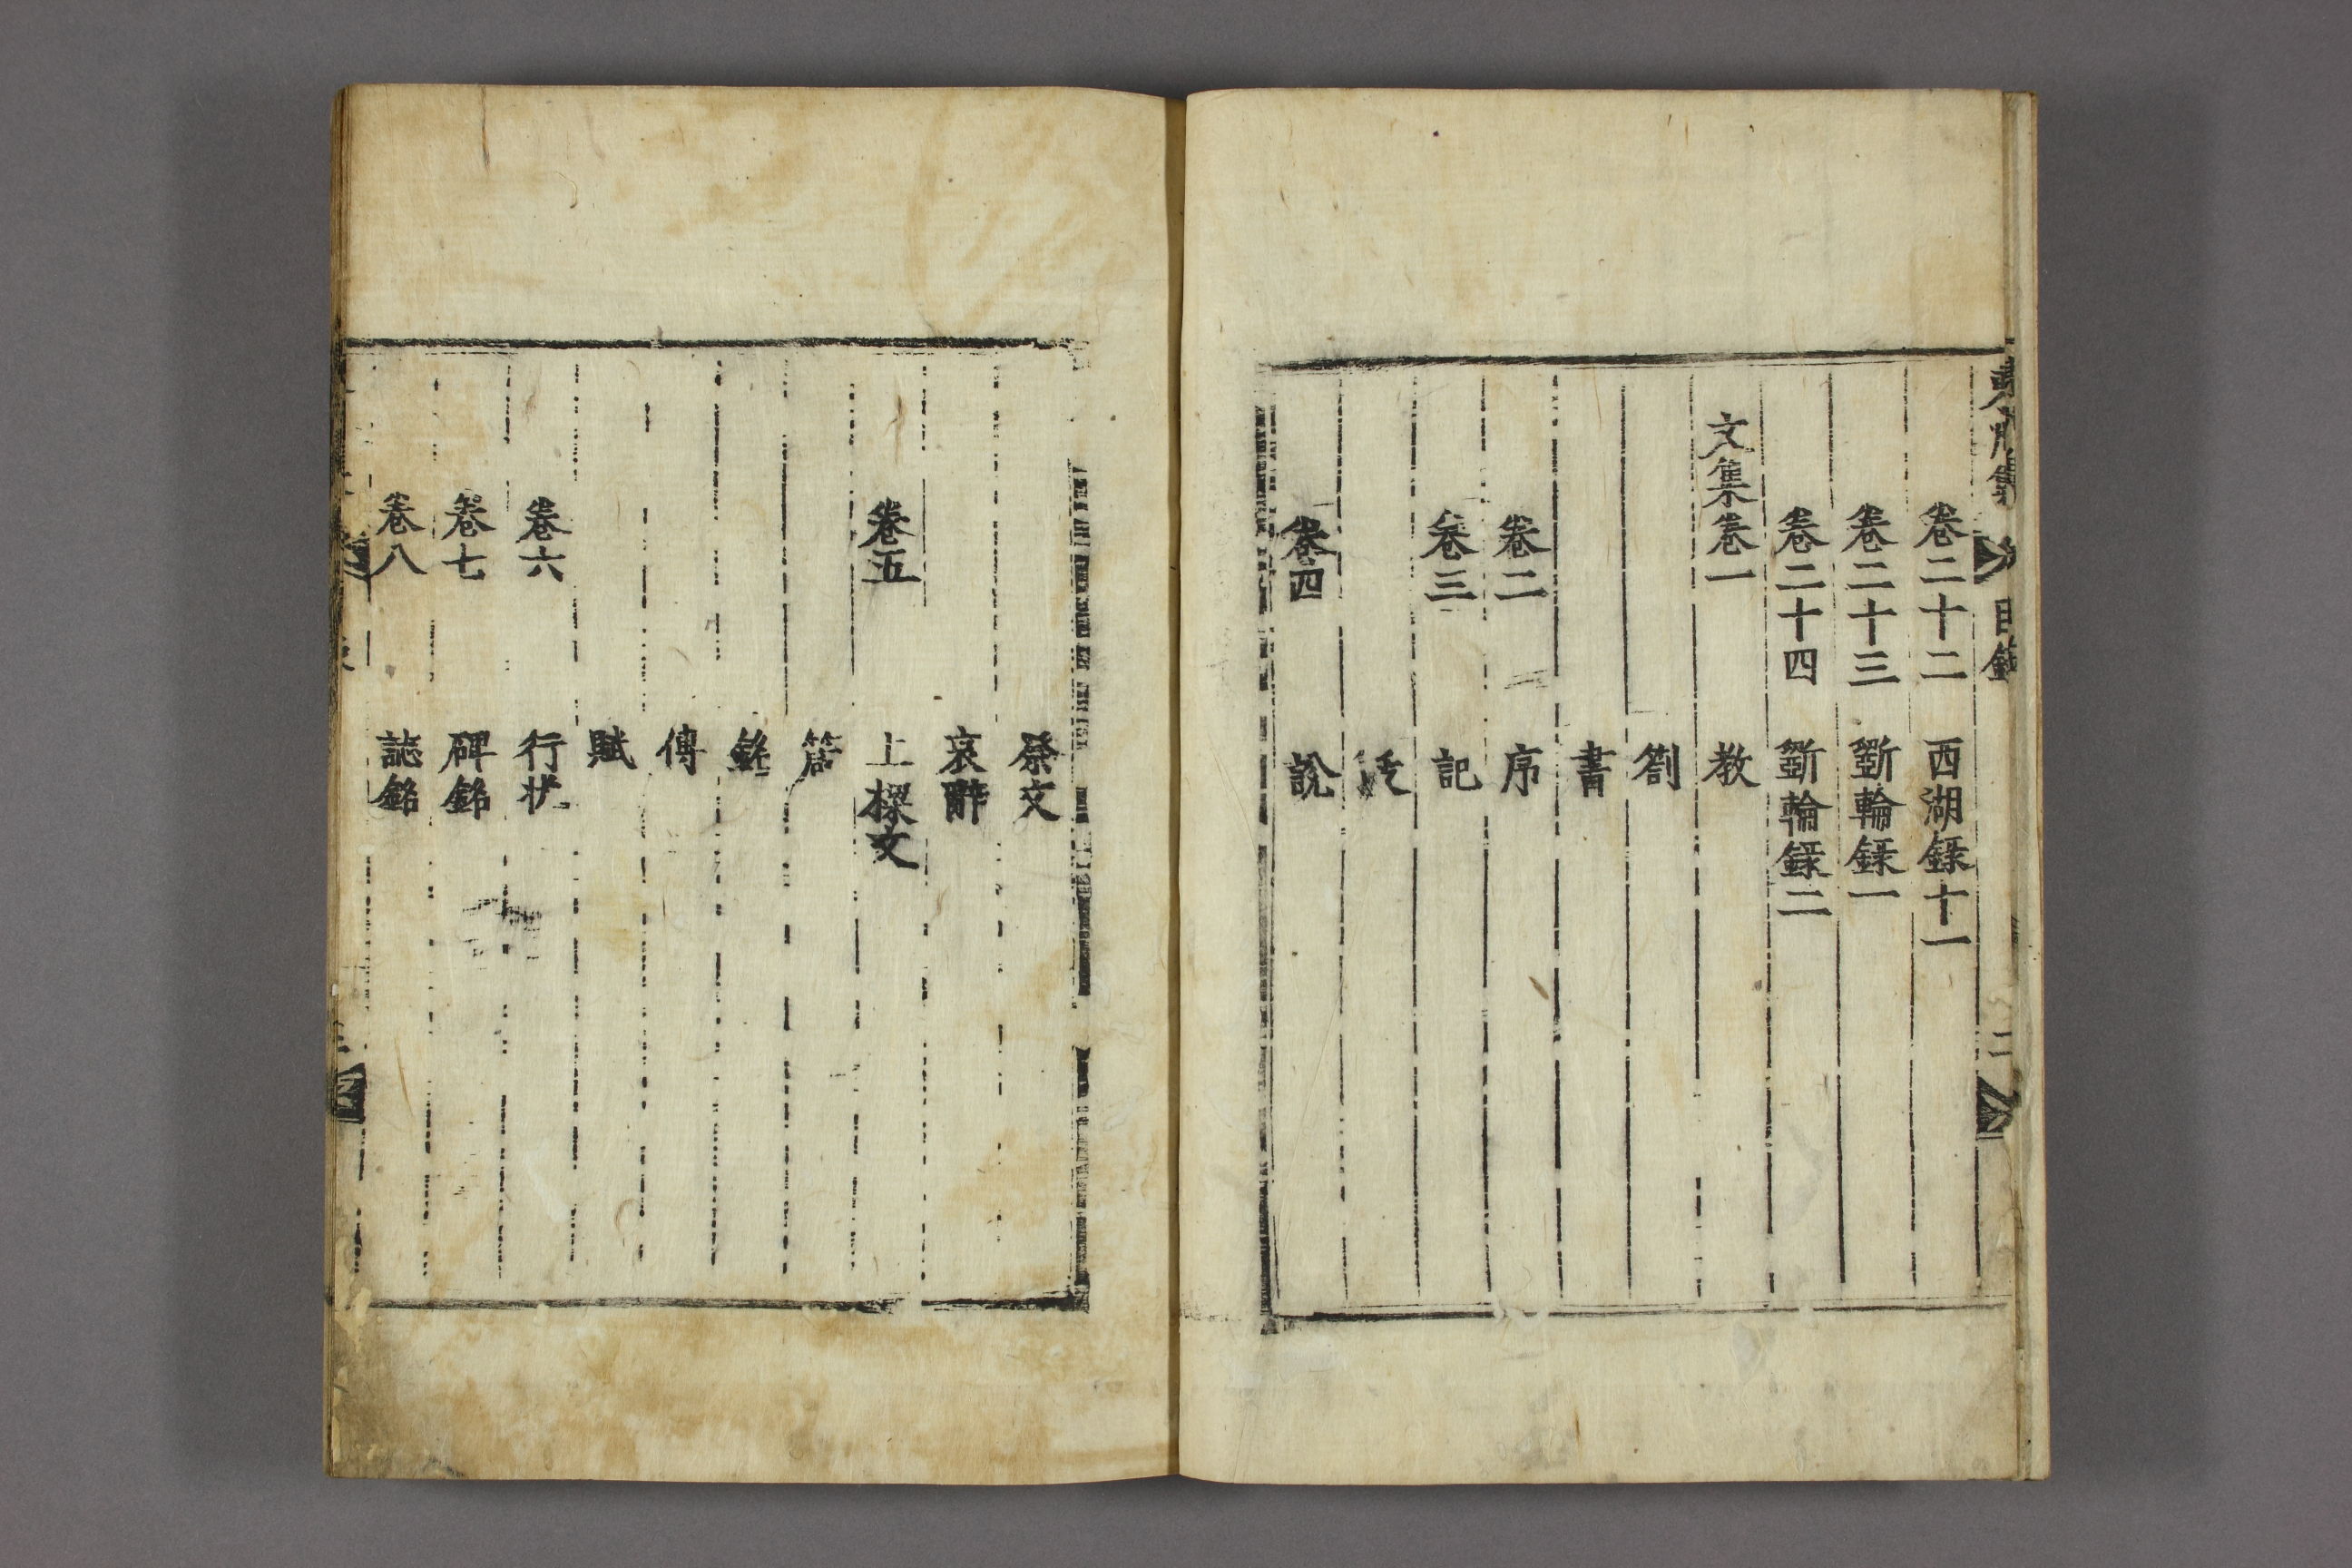 東州集
目錄
二
卷二十二 西湖錄十一
卷二十三 斲輪錄一
卷二十四 斲輪錄二
文集卷一 教
劄
書
卷二 序
卷三 記
卷四 說
祭文
哀辭
卷五 上樑文
傳
賦
卷六 行狀
卷七 碑銘
卷八 誌銘